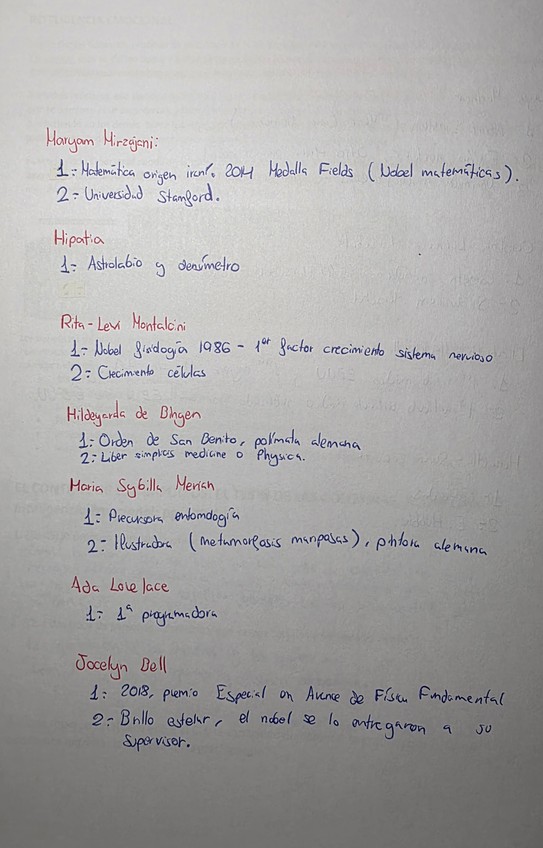 Maryam Mirzajani:
1= Matemática origen iraní. 2014 Medalla Fields (Nobel matemáticas).
2= Universidad Stamford.
Hipatia
1= Astrolabio y densímetro
Rita-Levi Montalcini
1= Nobel fisiología 1986 - 1er factor crecimiento sistema nervioso
2= Crecimiento células
Hildegarda de Bingen
1= Orden de San Benito, polímata alemana
2= Liber simplicis medicine o Physica.
Maria Sybilla Merian
1= Precursora entomología
2= Ilustradora (metamorfosis mariposas), pintora alemana
Ada Lovelace
1= 1ª programadora
Jocelyn Bell
1= 2018, premio Especial en Avance de Física Fundamental
2= Brillo estelar, el nobel se lo entregaron a su
supervisor.